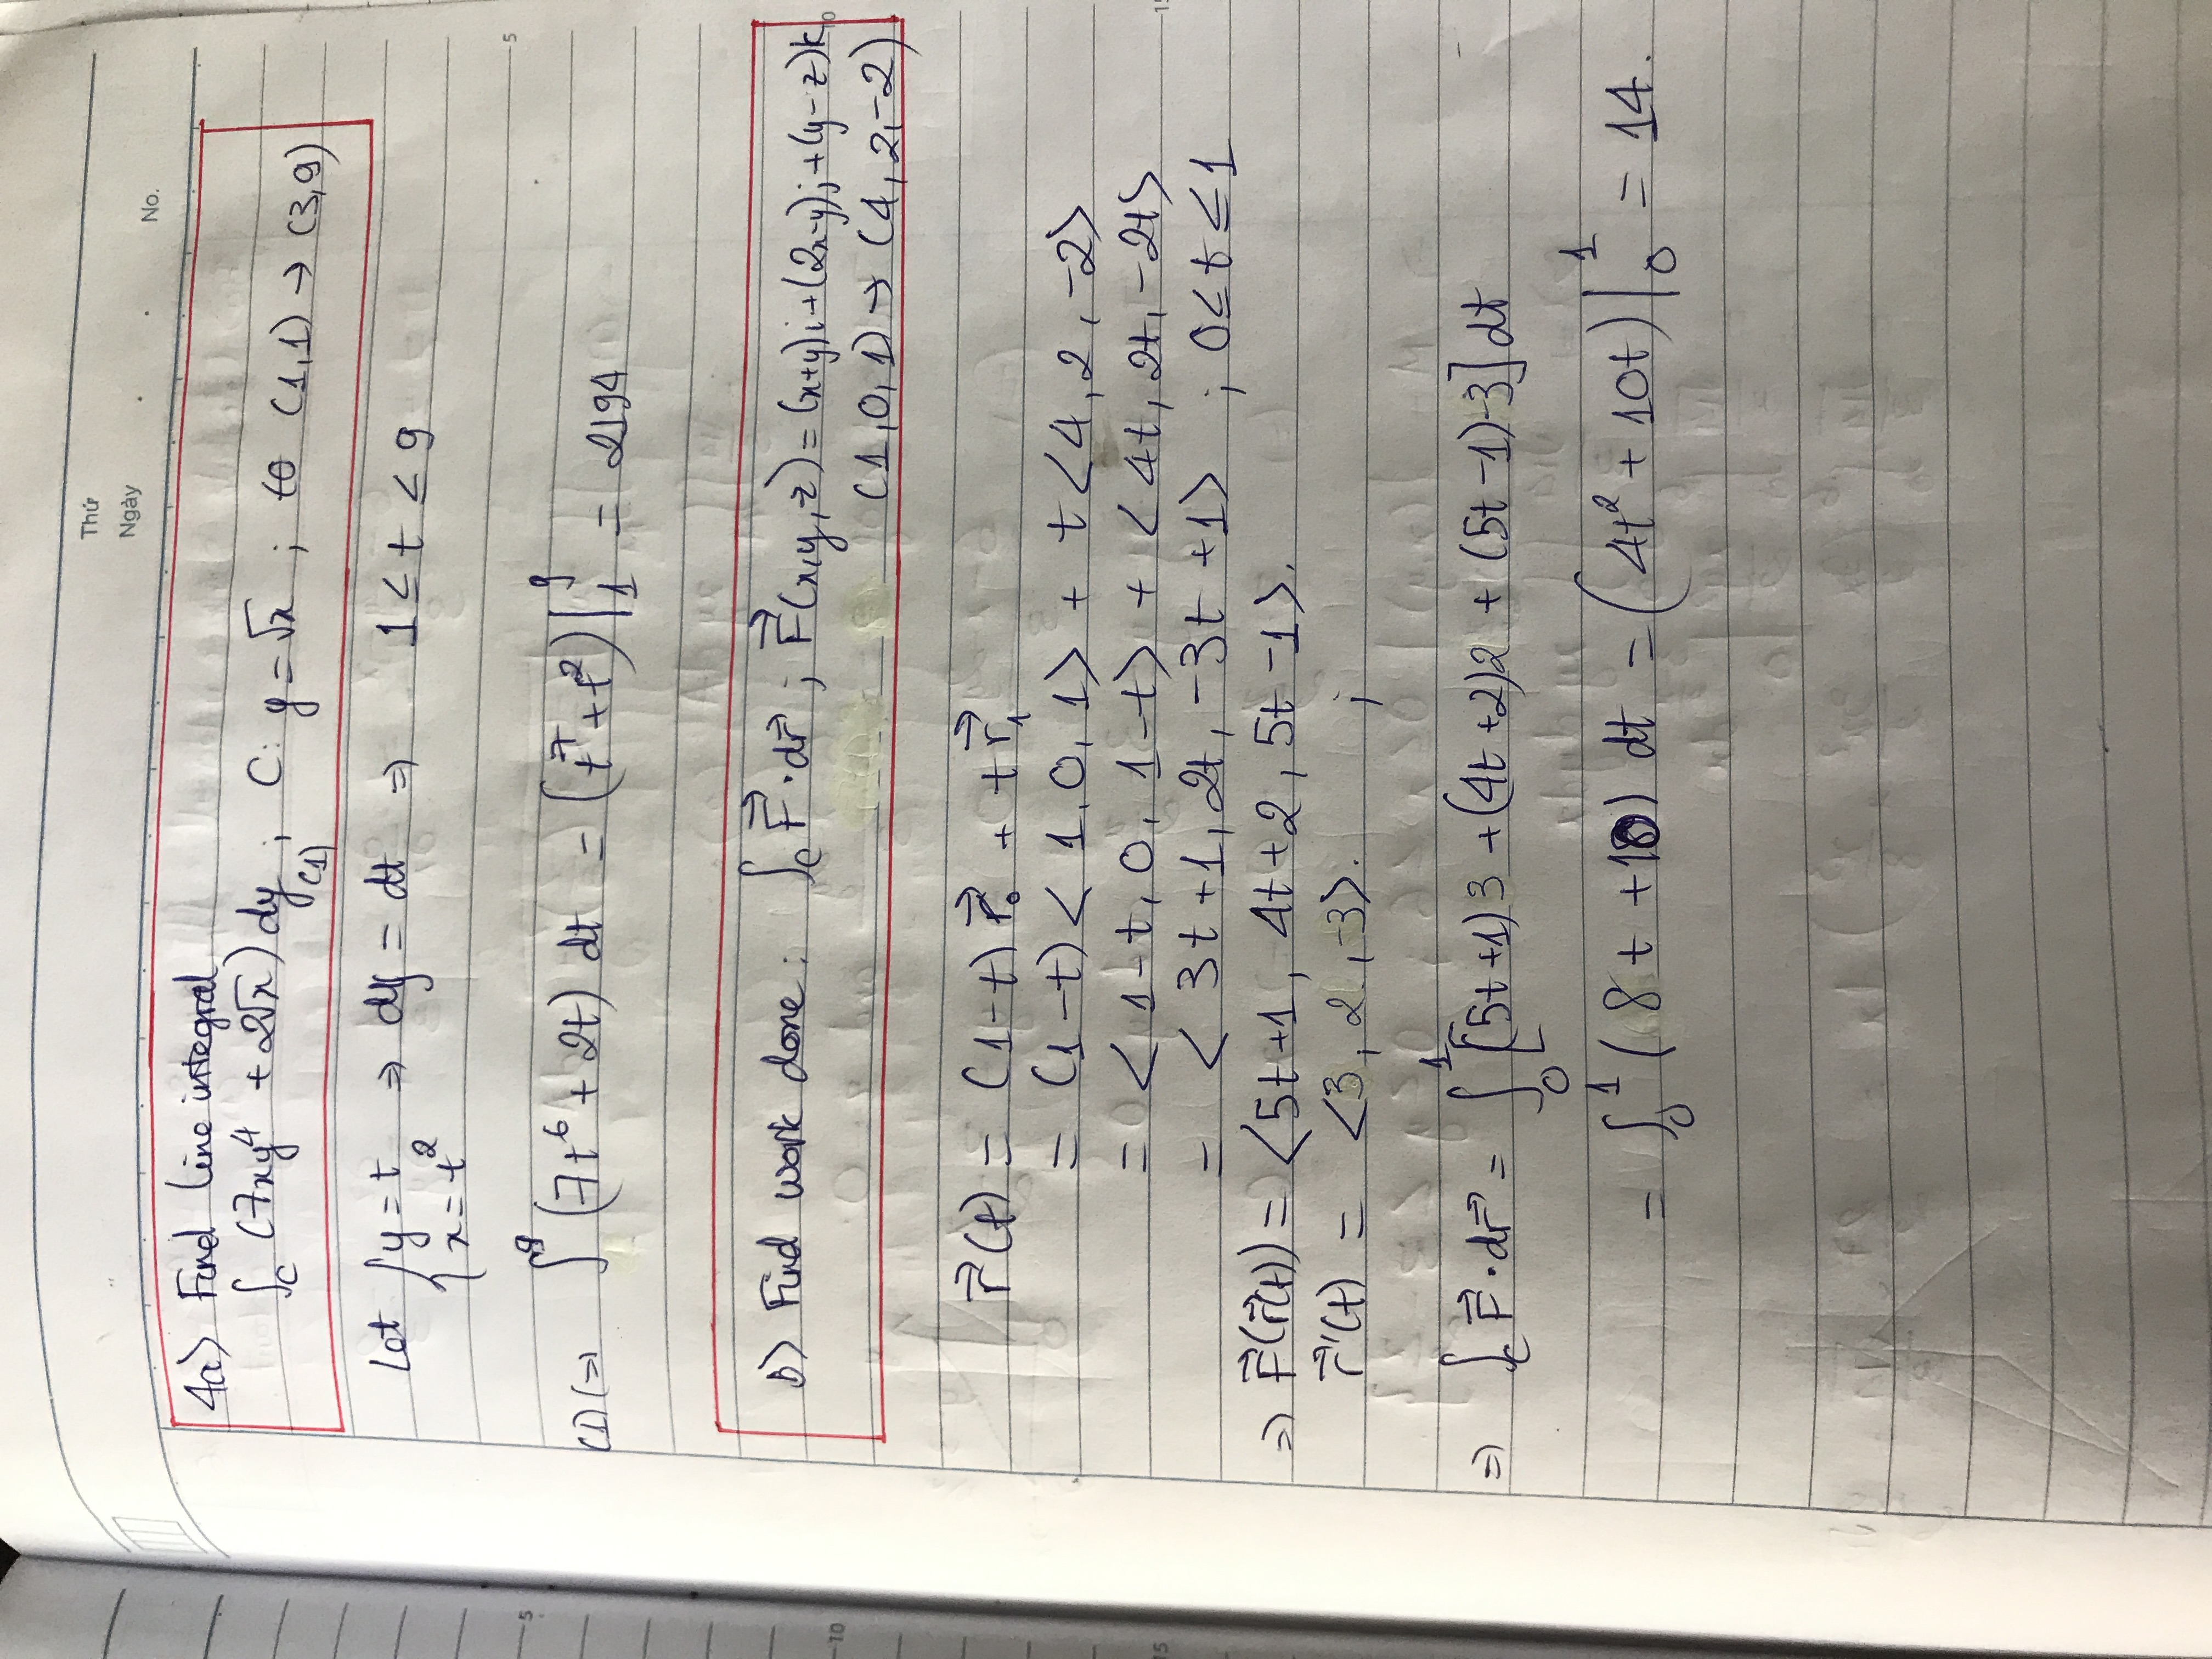 Thứ
Ngày
No.
4a) Find line integral
∫_C (7xy⁴ + 2√x) dy (1) ; C: y = √x ; (1,1) → (3,9)
Let { y = t ⇒ dy = dt ⇒ 1 < t < 9
x = t²
(1) (⇒) ∫⁹ (7t⁶ + 2t) dt = (t⁷ + t²) |₁⁹ = 2194
b) Find work done: ∫_C F⃗ · dr⃗ ; F⃗(x,y,z) = (x+y)i + (2x-y)j + (y-z)k
(1,0,1) → (4,2,-2)
r⃗(t) = (1-t) r⃗₀ + t r⃗₁
= (1-t) < 1, 0, 1> + t <4, 2, -2>
= < 1-t, 0, 1-t> + < 4t, 2t, -2t>
= < 3t+1, 2t, -3t +1> ; 0 ≤ t ≤ 1
⇒ F⃗(r⃗(t)) = <5t+1, 4t+2, 5t-1>.
r⃗'(t) = <3, 2, -3>. ;
⇒ ∫_C F⃗ · dr⃗ = ∫₀¹ [5t+1)3 + (4t+2)2 + (5t-1)-3] dt
= ∫₀¹ (8t + 10) dt = (4t² + 10t) |₀¹ = 14.
5
10
15
5
10
15